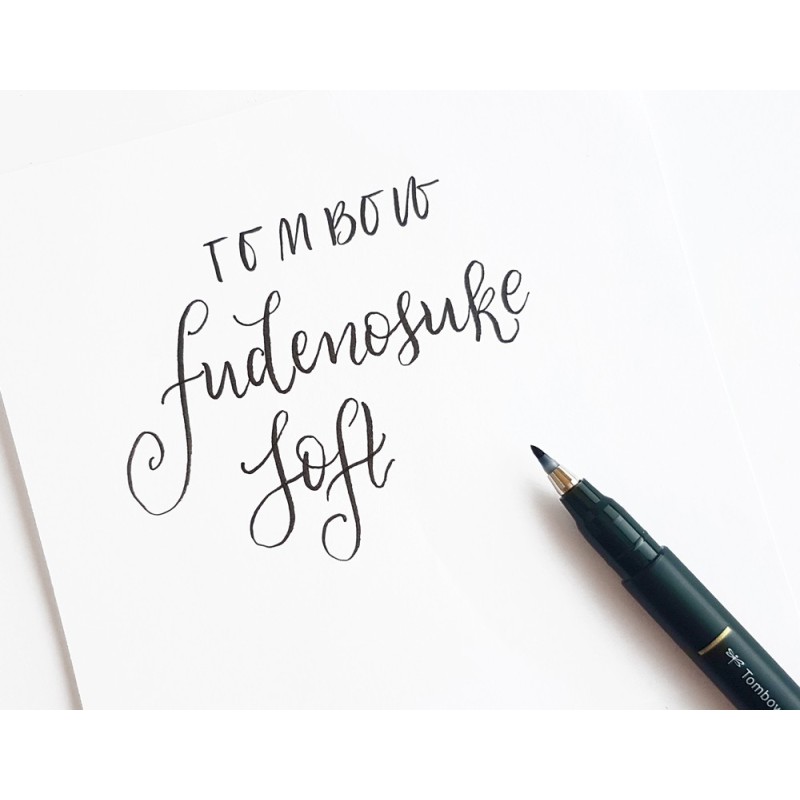 TOMBOW
fudenosuke
soft
Tombow